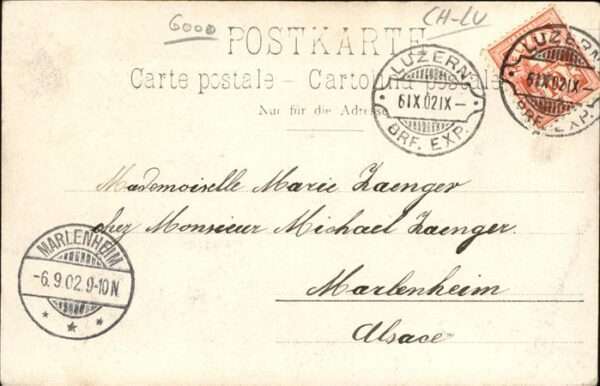 6000
CH-LU
POSTKARTE
Carte postale – Cartolina postale
Nur für die Adresse
LUZERN
6IX.02IX–
BRF. EXP.
LUZERN
6IX.02IX–
BRF. EXP.
Mademoiselle Marie Zaenger
cher Monsieur Michael Zaenger
Marlenheim
Alsace
MARLENHEIM
-6.9.02.9-10N.